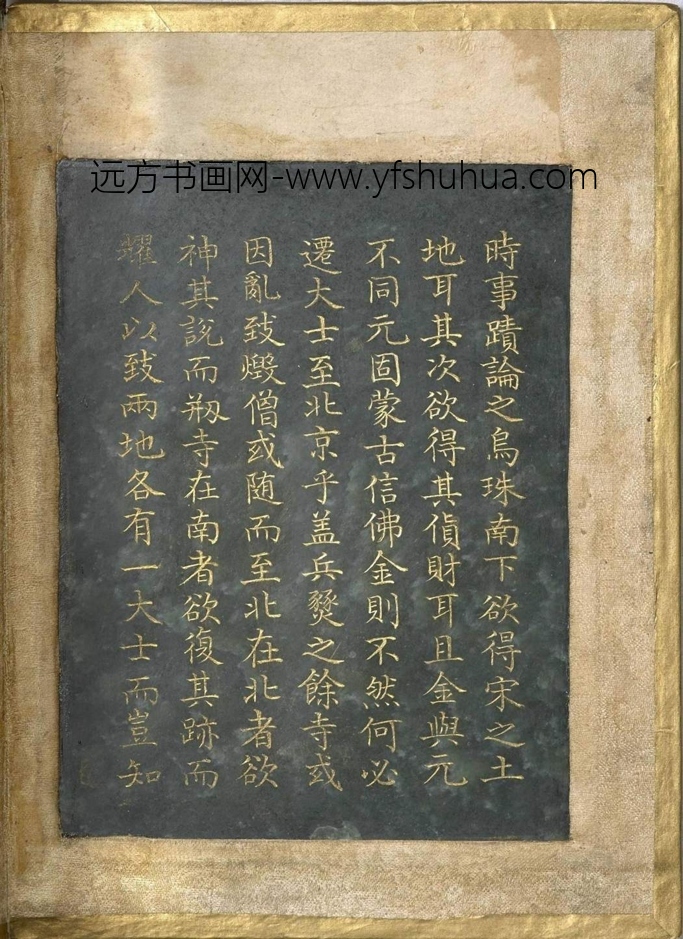 远方书画网-www.yfshuhua.com
時事蹟論之烏珠南下欲得宋之土
地耳其次欲得其貨財耳且金與元
不同元固蒙古信佛金則不然何必
遷大士至北京乎盖兵燹之餘寺或
因亂致燬僧或随而至北在北者欲
神其説而剏寺在南者欲復其跡而
耀人以致兩地各有一大士而豈知